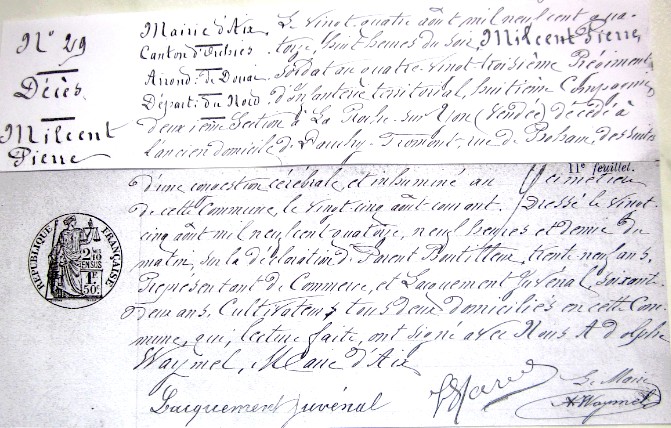 N° 29
Décès
Milcent
Pierre
Mairie d'Aix
Canton d'Orchies
Arrond. de Douai
Départ. du Nord
Le vingt quatre août mil neuf cent qua-
torze, huit heures du soir, Milcent Pierre,
Soldat au quatre vingt troisième Régiment
d'Infanterie territorial, huitième Compagnie
deuxième Section à La Roche-sur-Yon (Vendée) décédé à
l'ancien domicile de rue de des suites
11e feuillet.
d'une congestion cérébrale, et inhumé au cimetière
de cette Commune, le vingt cinq août courant. Dressé le vingt
cinq août mil neuf cent quatorze, neuf heures et demie du
matin, sur la déclaration de Parent trente neuf ans,
Représentant de Commerce, et Lacquement Juvénal, soixante
deux ans, Cultivateur, tous deux domiciliés en cette Com-
mune, qui, lecture faite, ont signé avec Nous Adolphe
Waymel, Maire d'Aix
RÉPUBLIQUE FRANÇAISE
2/10 EN SUS
1F 50c
Lacquement Juvénal
Le Maire
A Waymel